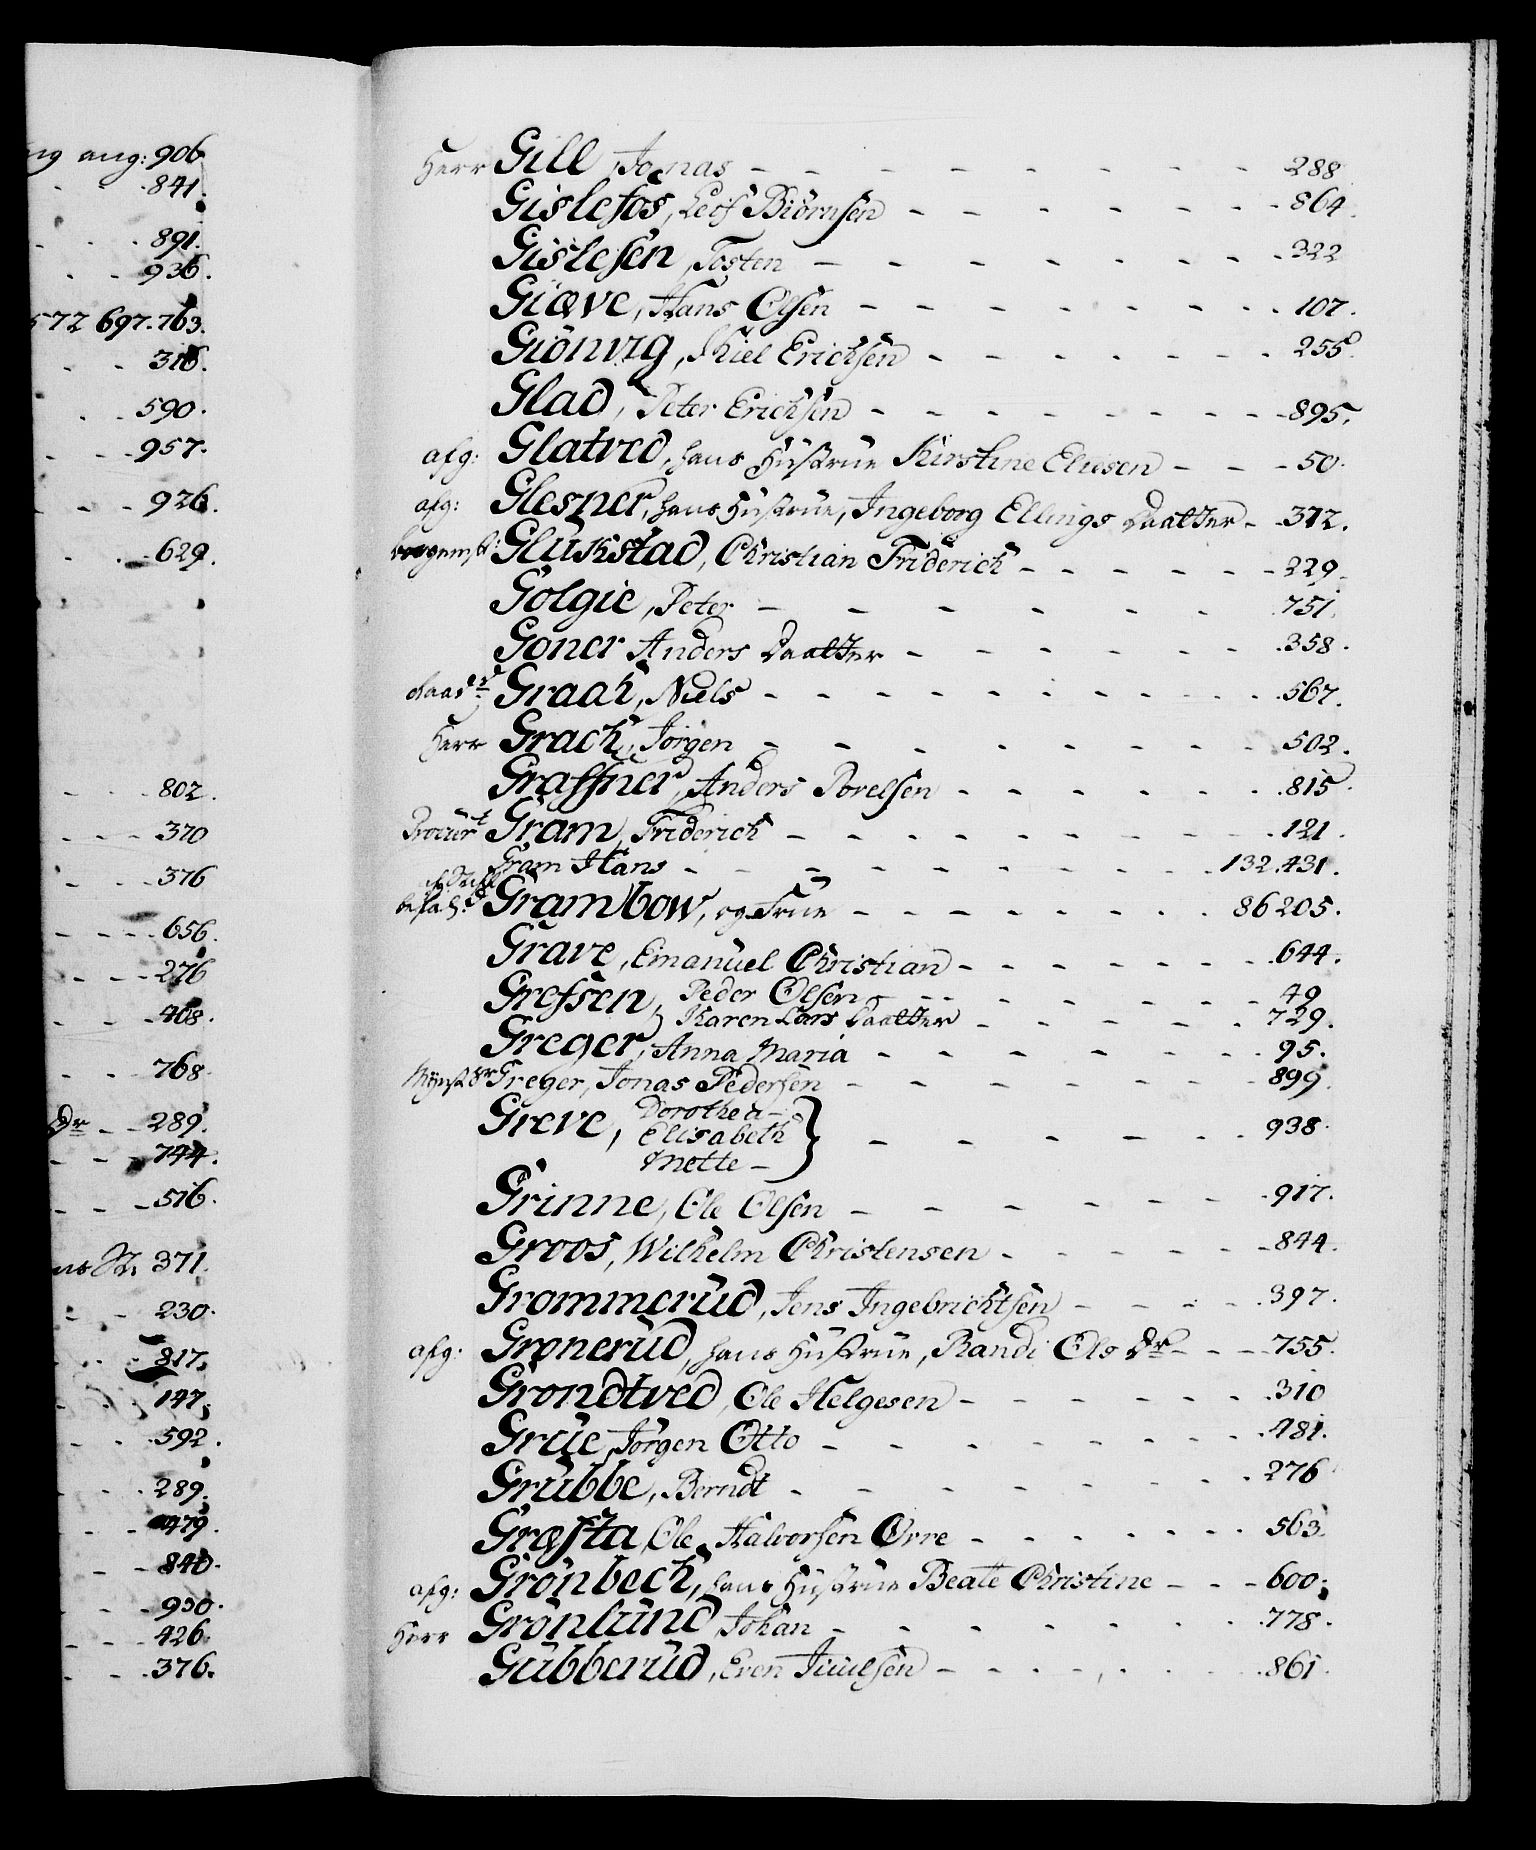 ng ang: 906
841.
891.
936.
572 697. 763.
316.
590.
957.
926.
629.
802.
370
376
656.
276
408.
768.
Dr 289.
744.
516.
371.
230.
817.
147.
592.
289.
479.
840.
930.
426.
376.
Herr Gill, Jonas 288
Gislefos, Leif Biörnsen 864.
Gislesen, Tosten 322
Giæve, Hans Olsen 107.
Giönvig, Kiel Erichsen 255.
Glad, Peter Erichsen 895.
afg: Glatved, hans Hüstrüe Kirstine Eliesen 50.
afg: Glesner, hans Hüstrüe, Ingeborg Ellings Daatter 312.
Glükstad, Christian Friderich 229.
Golgie, Peter 751.
Goner Anders Daatter 358.
Graah, Niels 567.
Herr Grach, Jörgen 502.
Graffner, Anders Povelsen 815.
Procürt Gram, Friderich 121.
Gram Hans 132. 431.
Grambow, og Früe 86 205.
Grave, Emanüel Christian 644.
Grefsen, Peder Olsen 49
Karen Lars Daatter 729.
Greger, Anna Maria 95.
Greger, Jonas Pedersen 899.
Greve, Dorothea
Elisabeth 938.
Mette
Grinne, Ole Olsen 917.
Groos, Wilhelm Christensen 844.
Grommerüd, Jens Ingebrichtsen 397.
afg: Gronerüd, hans Hüstrüe, Randi Ols Dr 755.
Grondtved, Ole Helgesen 310
Grüe, Jörgen Otto 481.
Grübbe, Berndt 276
Græsta, Ole Halvorsen Øvre 563.
afg: Grönbech, hans Hüstrüe Beate Christine 600.
Herr Grönlünd, Johan 778.
Gübberüd, Even Juulsen 861.